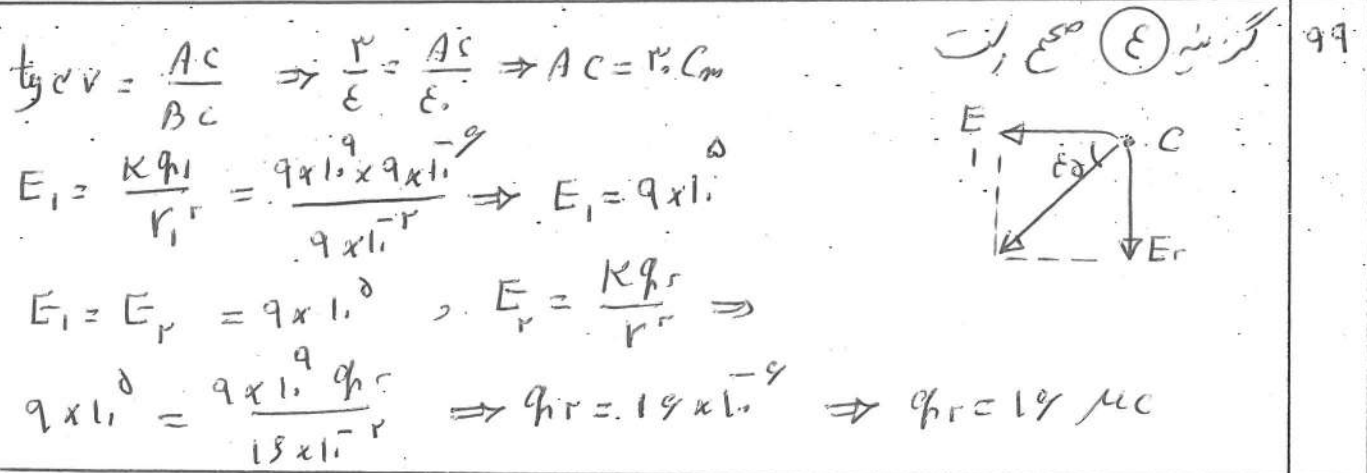 ۹۹
گزینه ۴ صحیح است
tg ۳۷ = AC / BC ⇒ ۳/۴ = AC/۴۰ ⇒ AC = ۳۰ Cm
E C
۱ ۴۵
E۲
E۱ = Kq۱ / r۱^۲ = ۹×۱۰^۹ × ۹×۱۰^-۶ / ۹×۱۰^-۲ ⇒ E۱ = ۹×۱۰^۵
E۱ = E۲ = ۹×۱۰^۵ , E۲ = Kq۲ / r^۲ ⇒
۹×۱۰^۵ = ۹×۱۰^۹ q۲ / ۱۶×۱۰^-۲ ⇒ q۲ = ۱۶×۱۰^-۶ ⇒ q۲ = ۱۶ μc